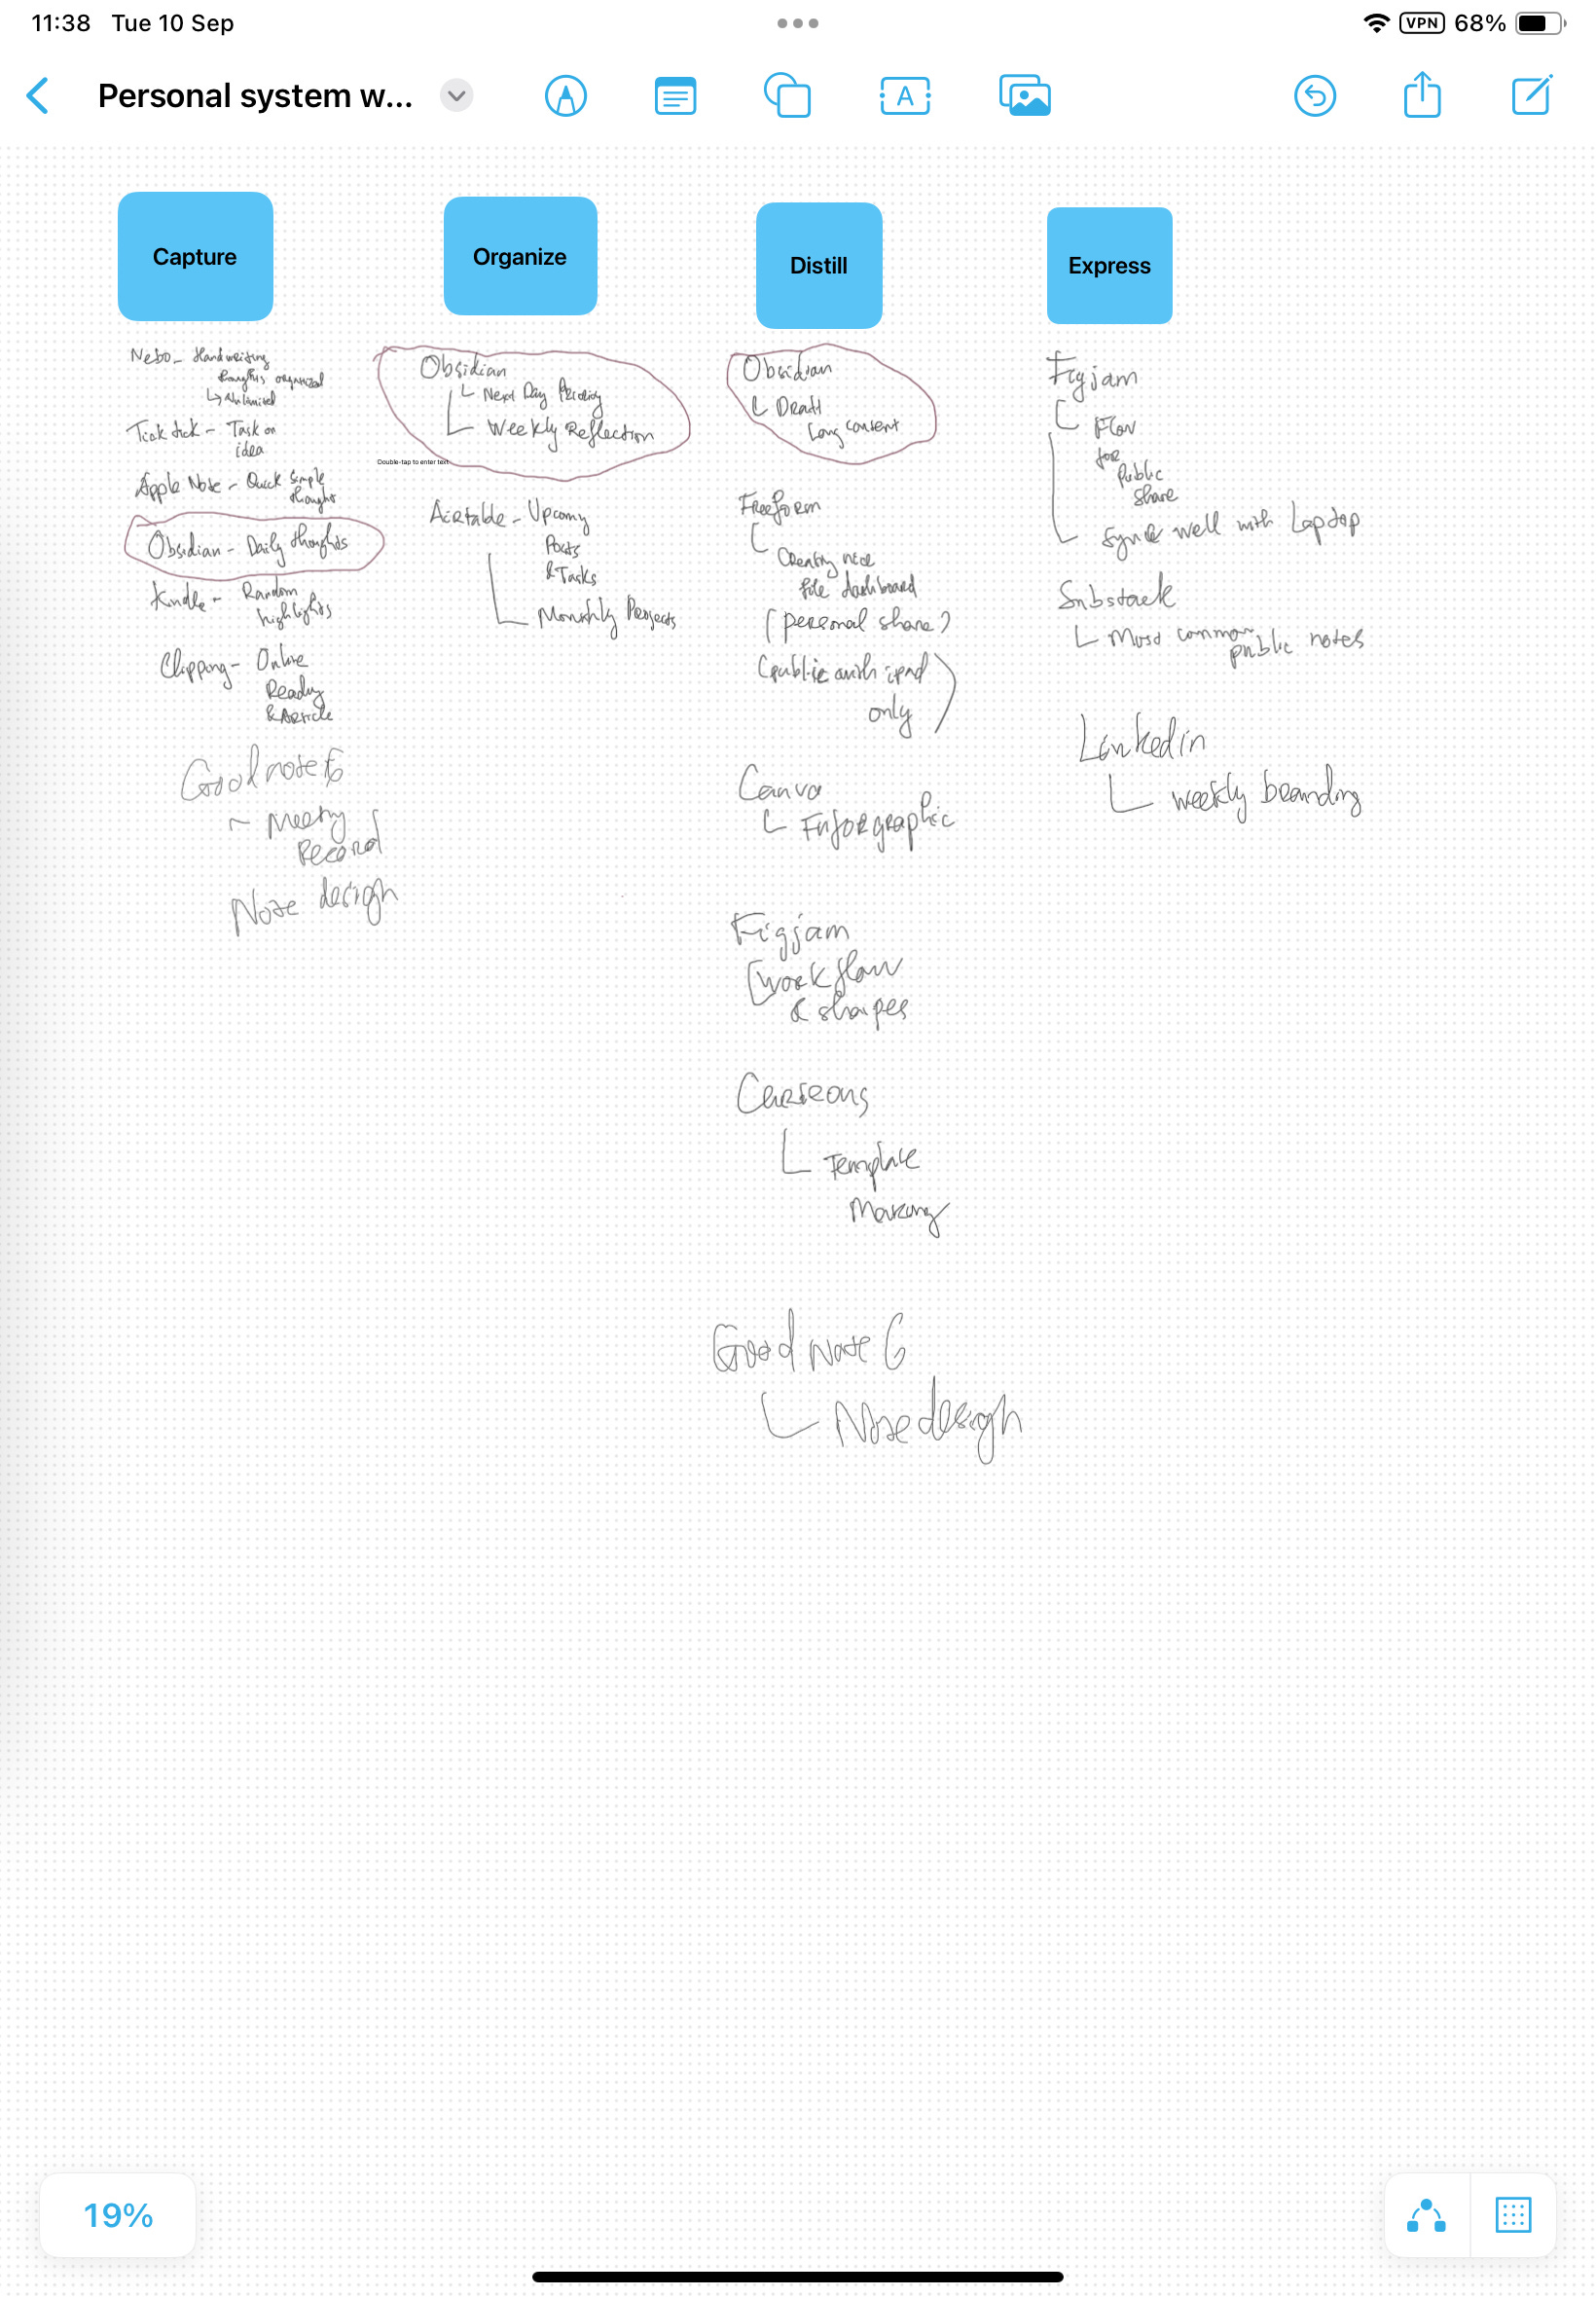 11:38 Tue 10 Sep
VPN 68%
Personal system w...
A
Capture
Organize
Distill
Express
Nebo - Handwriting
thoughts organized
↳ Unlimited
Tick tick - Task or
idea
Apple Note - Quick simple
thought
Obsidian - Daily thoughts
Kindle - Random
highlights
Clipping - Online
Reading
& Article
Goodnote 6
- Meeting
Record
Note design
Obsidian
Next Day Priority
Weekly Reflection
Double-tap to enter text
Airtable - Upcomy
Posts
& Tasks
Monthly Projects
Obsidian
Draft
Long content
Freeform
Creating nice
file dashboard
(personal share)
(public with ipad
only)
Canva
Inforgraphic
Figjam
workflow
& shapes
Template
Making
Good note 6
Note design
Figjam
Flow
for
Public
share
Sync well with Laptop
Substack
Most common
public notes
Linkedin
weekly branding
19%